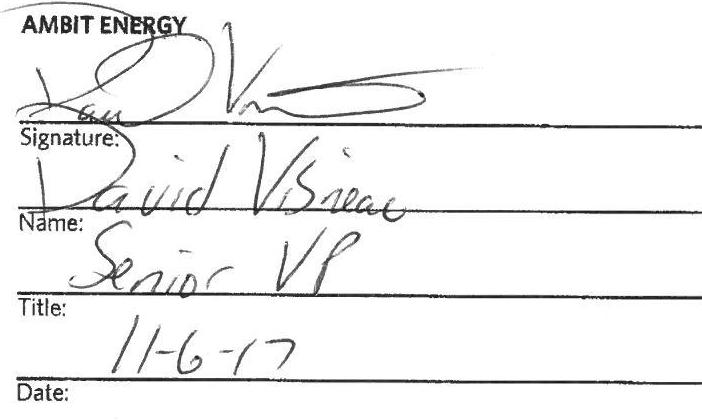 AMBIT ENERGY
Signature:
David
Name:
Senior VP
Title:
11-6-17
Date: